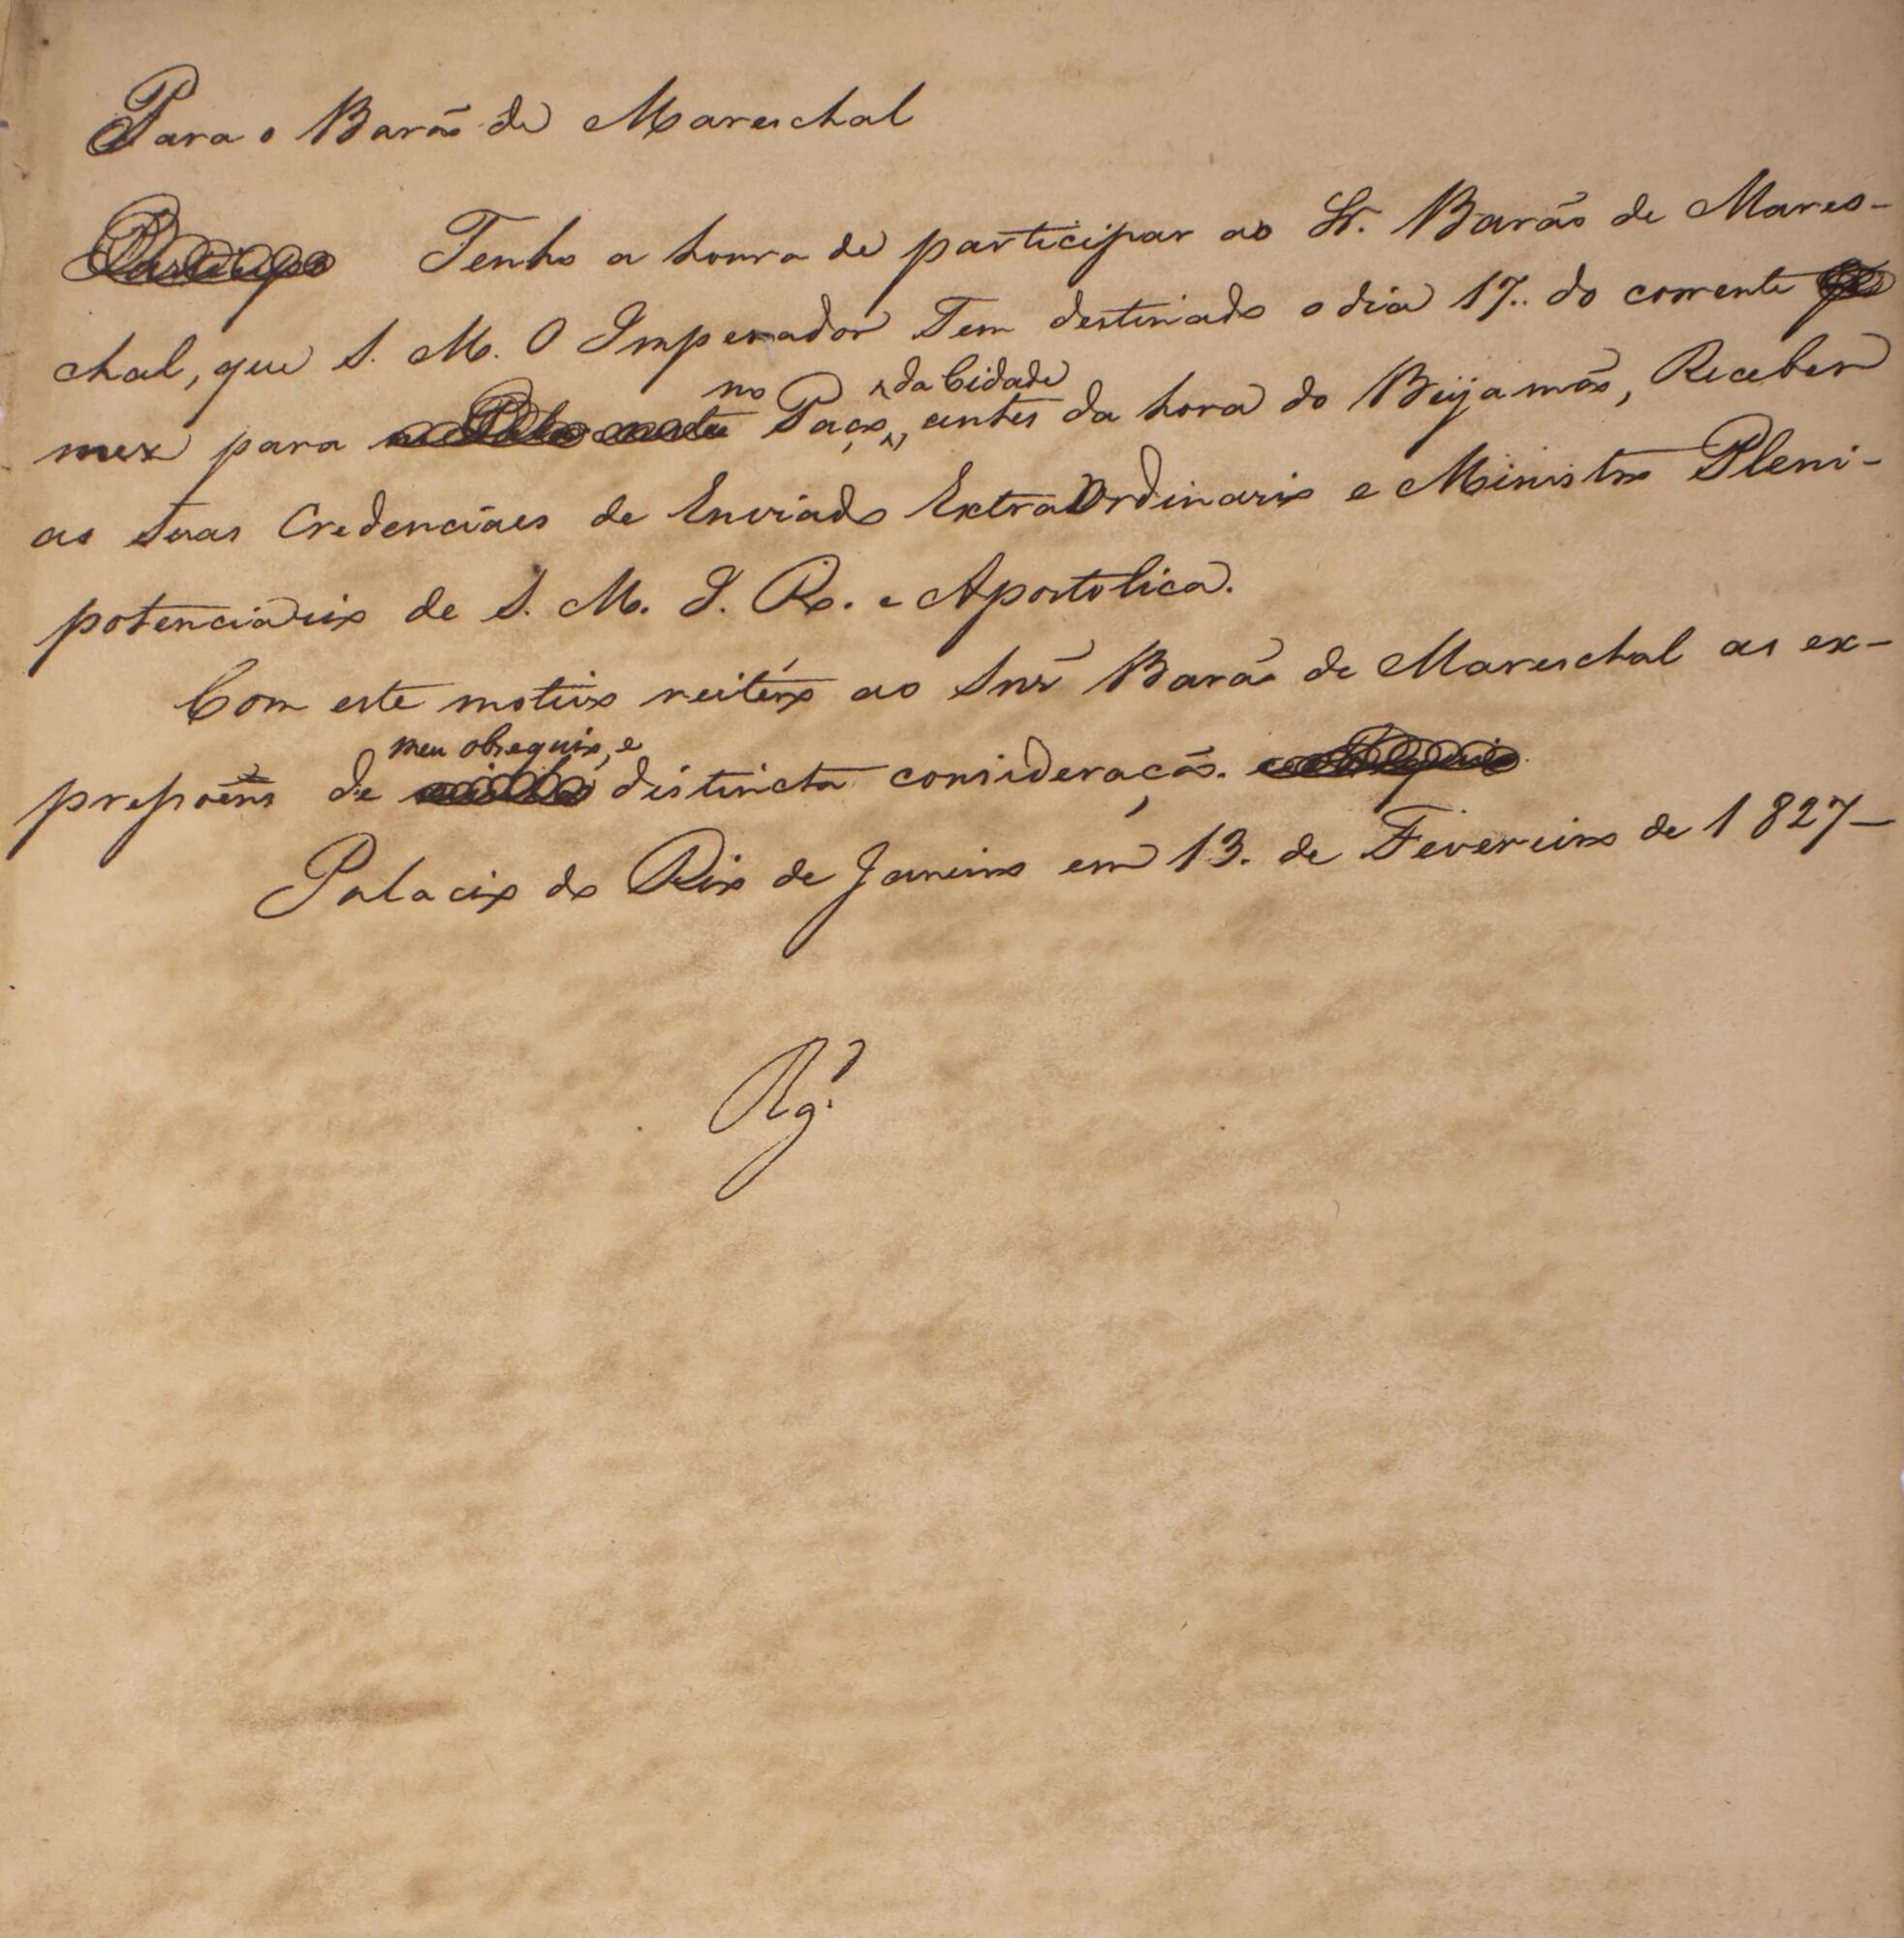 Para o Barão de Mareschal
Tenho a honra de participar ao Sr. Barão de Mares-
chal, que S. M. O Imperador Tem destinado o dia 17.. do corrente
mez para no Paço da Cidade, antes da hora do Beijamão, Receber
as Suas Credenciáes de Enviado ExtraOrdinario e Ministro Pleni-
potenciario de S. M. I. R. e Apostolica.
Com este motivo reitéro ao Snr̃ Barão de Mareschal as ex-
prespoẽns de meu obsequio, e distincta consideração.
Palacio do Rio de Janeiro em 13. de Fevereiro de 1827—